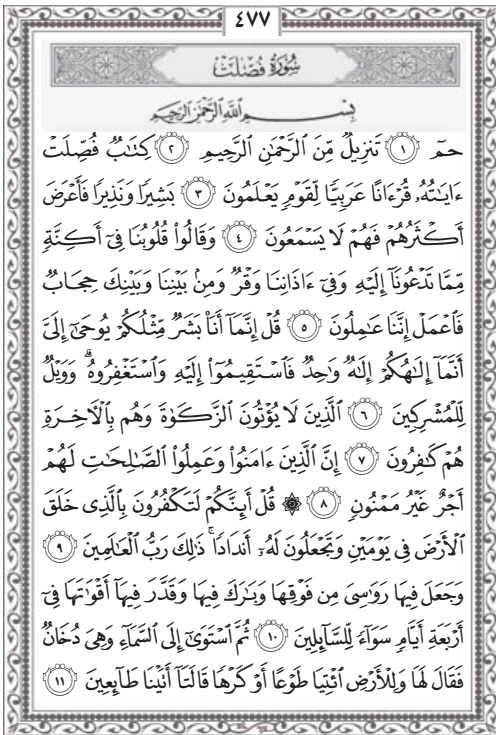 ٤٧٧
سُورَةُ فُصِّلَتْ
بِسْمِ ٱللَّهِ ٱلرَّحْمَٰنِ ٱلرَّحِيمِ
حمٓ ١ تَنزِيلٌ مِّنَ ٱلرَّحْمَٰنِ ٱلرَّحِيمِ ٢ كِتَٰبٌ فُصِّلَتْ
ءَايَٰتُهُۥ قُرْءَانًا عَرَبِيًّا لِّقَوْمٍ يَعْلَمُونَ ٣ بَشِيرًا وَنَذِيرًا فَأَعْرَضَ
أَكْثَرُهُمْ فَهُمْ لَا يَسْمَعُونَ ٤ وَقَالُوا۟ قُلُوبُنَا فِىٓ أَكِنَّةٍ
مِّمَّا تَدْعُونَآ إِلَيْهِ وَفِىٓ ءَاذَانِنَا وَقْرٌ وَمِنۢ بَيْنِنَا وَبَيْنِكَ حِجَابٌ
فَٱعْمَلْ إِنَّنَا عَٰمِلُونَ ٥ قُلْ إِنَّمَآ أَنَا۠ بَشَرٌ مِّثْلُكُمْ يُوحَىٰٓ إِلَىَّ
أَنَّمَآ إِلَٰهُكُمْ إِلَٰهٌ وَٰحِدٌ فَٱسْتَقِيمُوٓا۟ إِلَيْهِ وَٱسْتَغْفِرُوهُ ۗ وَوَيْلٌ
لِّلْمُشْرِكِينَ ٦ ٱلَّذِينَ لَا يُؤْتُونَ ٱلزَّكَوٰةَ وَهُم بِٱلْءَاخِرَةِ
هُمْ كَٰفِرُونَ ٧ إِنَّ ٱلَّذِينَ ءَامَنُوا۟ وَعَمِلُوا۟ ٱلصَّٰلِحَٰتِ لَهُمْ
أَجْرٌ غَيْرُ مَمْنُونٍ ٨ ۞ قُلْ أَئِنَّكُمْ لَتَكْفُرُونَ بِٱلَّذِى خَلَقَ
ٱلْأَرْضَ فِى يَوْمَيْنِ وَتَجْعَلُونَ لَهُۥٓ أَندَادًا ۚ ذَٰلِكَ رَبُّ ٱلْعَٰلَمِينَ ٩
وَجَعَلَ فِيهَا رَوَٰسِىَ مِن فَوْقِهَا وَبَٰرَكَ فِيهَا وَقَدَّرَ فِيهَآ أَقْوَٰتَهَا فِىٓ
أَرْبَعَةِ أَيَّامٍ سَوَآءً لِّلسَّآئِلِينَ ١٠ ثُمَّ ٱسْتَوَىٰٓ إِلَى ٱلسَّمَآءِ وَهِىَ دُخَانٌ
فَقَالَ لَهَا وَلِلْأَرْضِ ٱئْتِيَا طَوْعًا أَوْ كَرْهًا قَالَتَآ أَتَيْنَا طَآئِعِينَ ١١